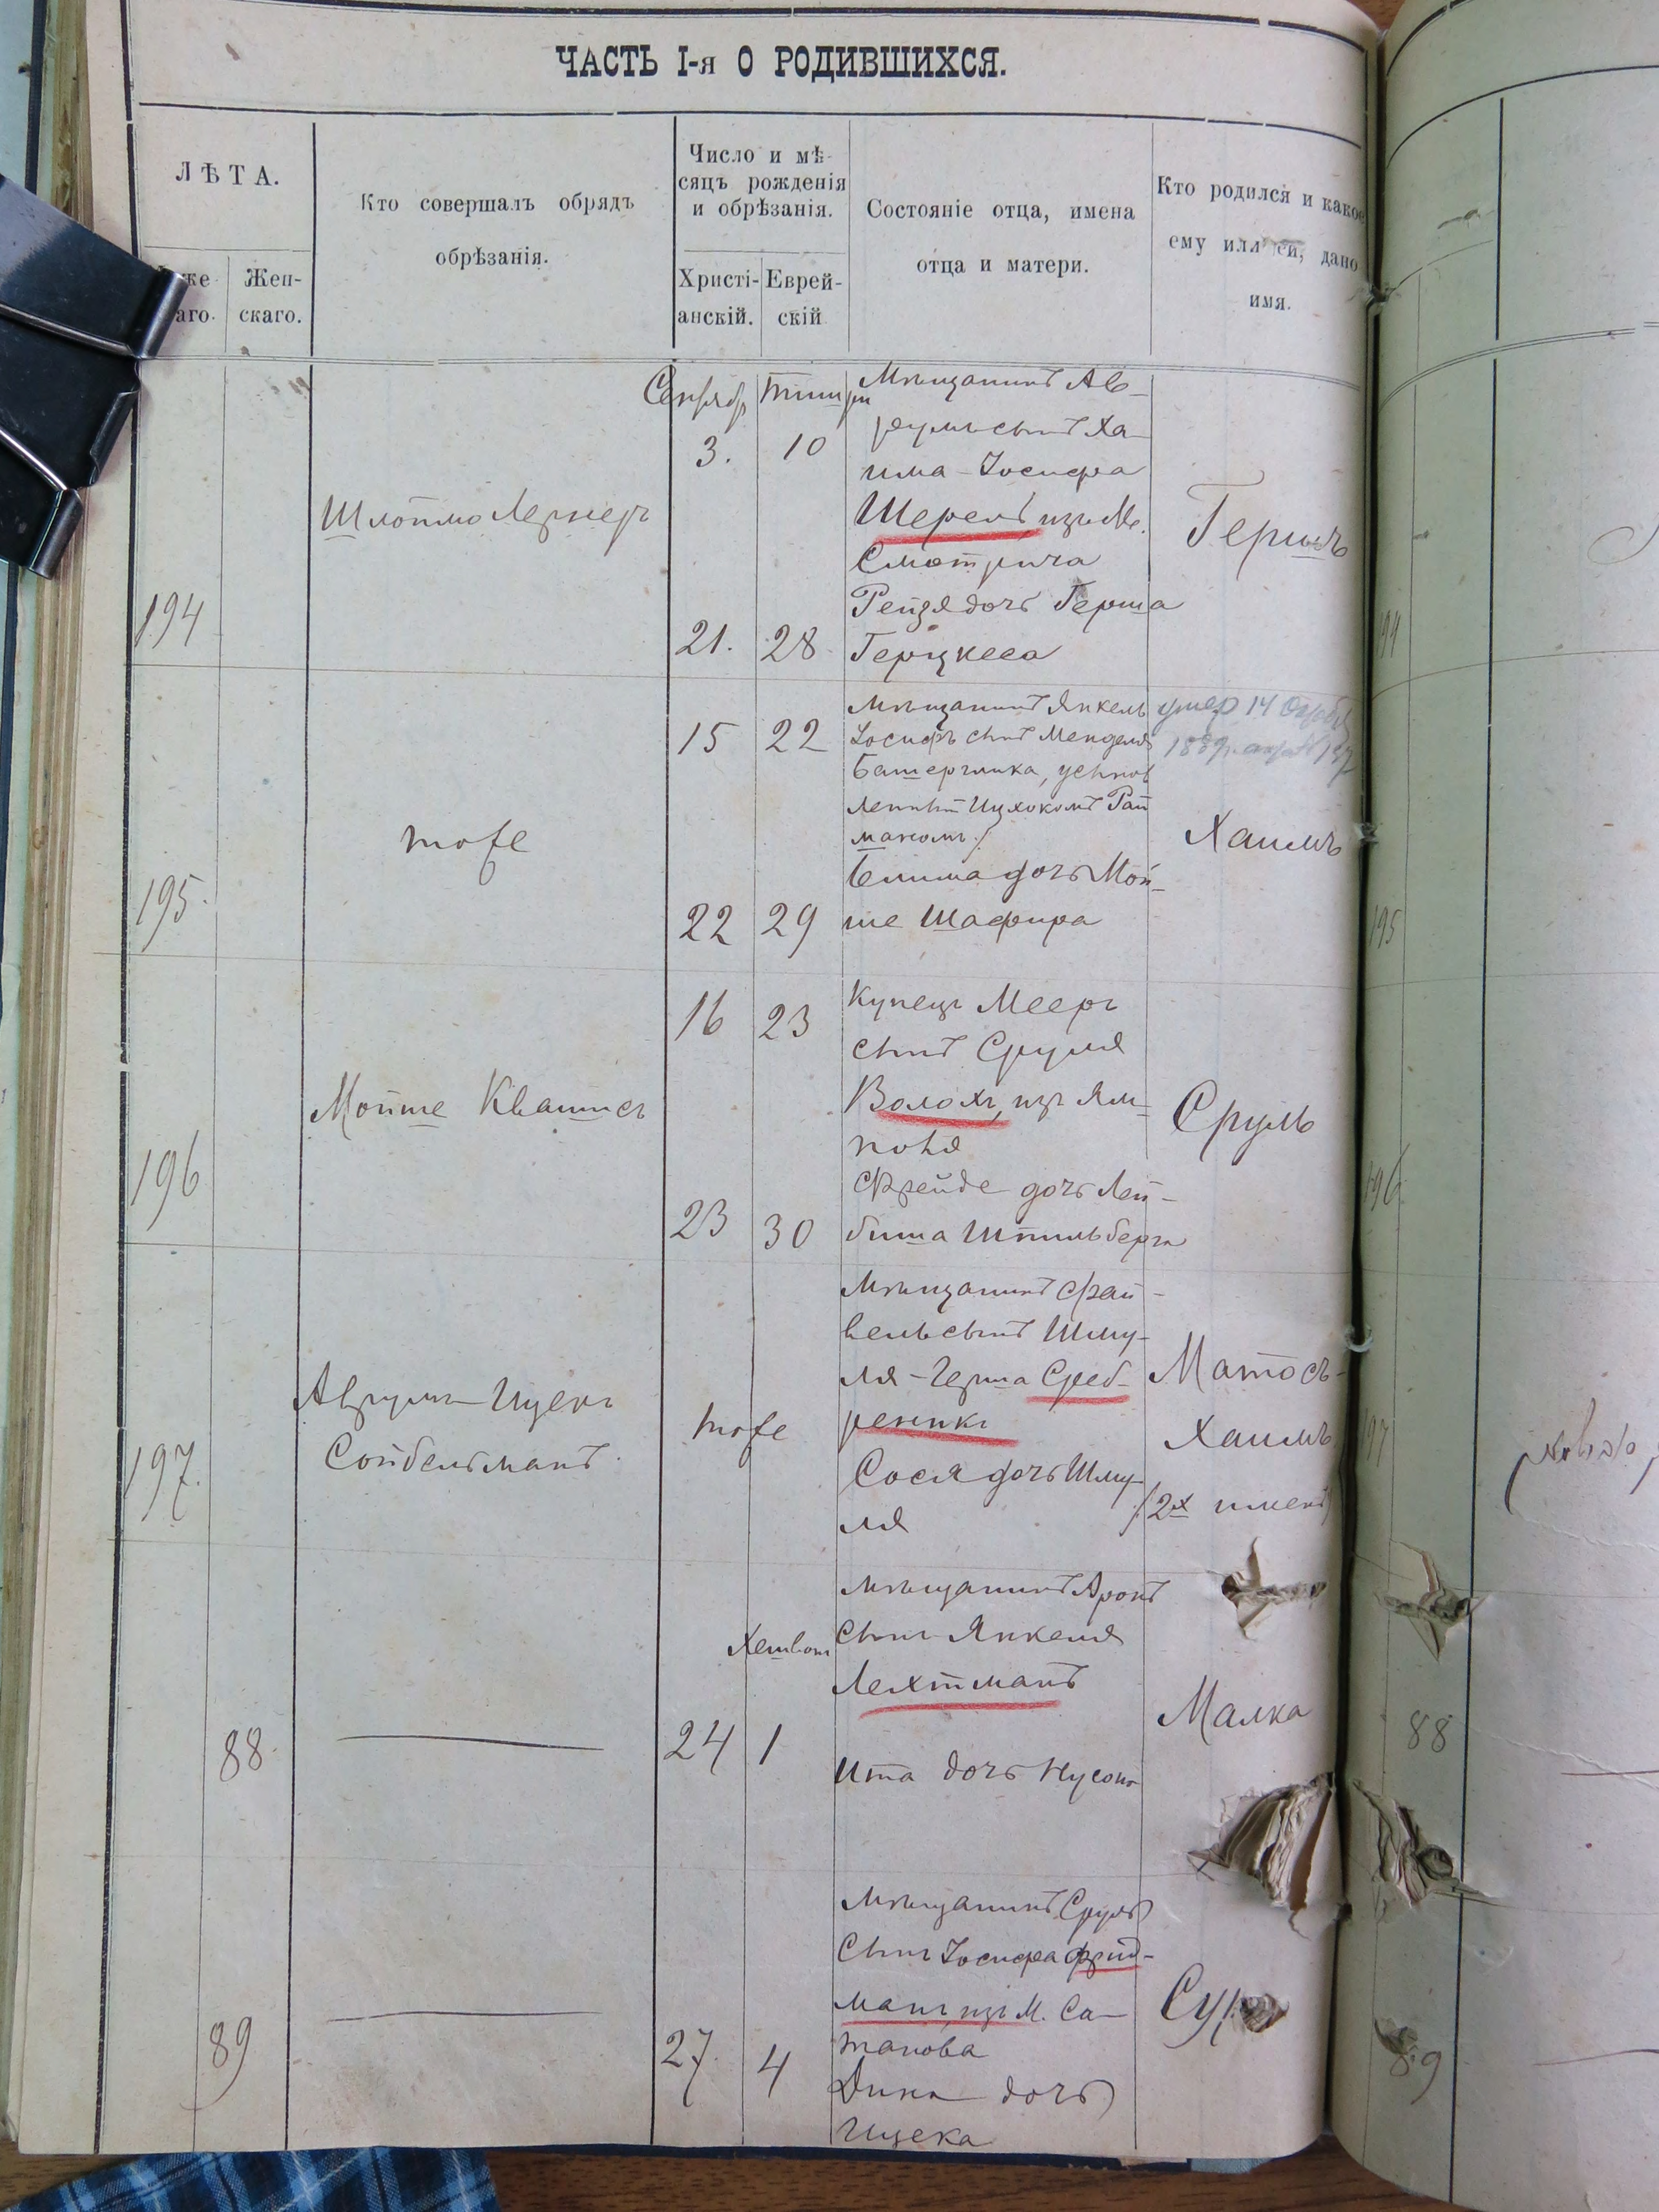 ЧАСТЬ I-я О РОДИВШИХСЯ.
ЛѢТА.
Жен-
скаго.
Кто совершалъ обрядъ
обрѣзанія.
Число и мѣ-
сяцъ рожденія
и обрѣзанія.
Христі-
анскій.
Еврей-
скій
Состояніе отца, имена
отца и матери.
Кто родился и какое
ему или ей, дано
имя.
194
Шлойма Лернеръ
Сентябр
3.
21.
Тишри
10
28
Мѣщанинъ Ав-
румъ сынъ Ха-
има-Іосифа
Шерель изъ М.
Смотрича
Рейзя дочь Герша
Герцкеса
Гершъ
194
195.
тоже
15
22
22
29
Мѣщанинъ Янкель
Іосифъ сынъ Менделя
усынов
ленный Ицхокомъ Рай
маномъ)
дочь Мой-
ше Шафира
умер 14
Хаимъ
195
196
Мойше
16
23
23
30
Купецъ Мееръ
сынъ Сруля
Волохъ, изъ Ям-
поля
Фрейде дочь Лей-
биша Шпильберга
Сруль
196
197.
Аврумъ-Ицекъ
Сойбельманъ.
тоже
Мѣщанинъ Фай-
вель сынъ Шму-
ля-Герша Среб-
реникъ
Сося дочь Шму-
ля
Матосъ-
Хаимъ
(2х именъ)
197
88
Хешван
24
1
Мѣщанинъ Аронъ
сынъ Янкеля
Лехтманъ
Ита дочь Нусона
Малка
88
89
27.
4
Мѣщанинъ Сруль
сынъ Іосифа Фрид-
манъ, изъ М. Са-
танова
Дина дочь
Ицека
89